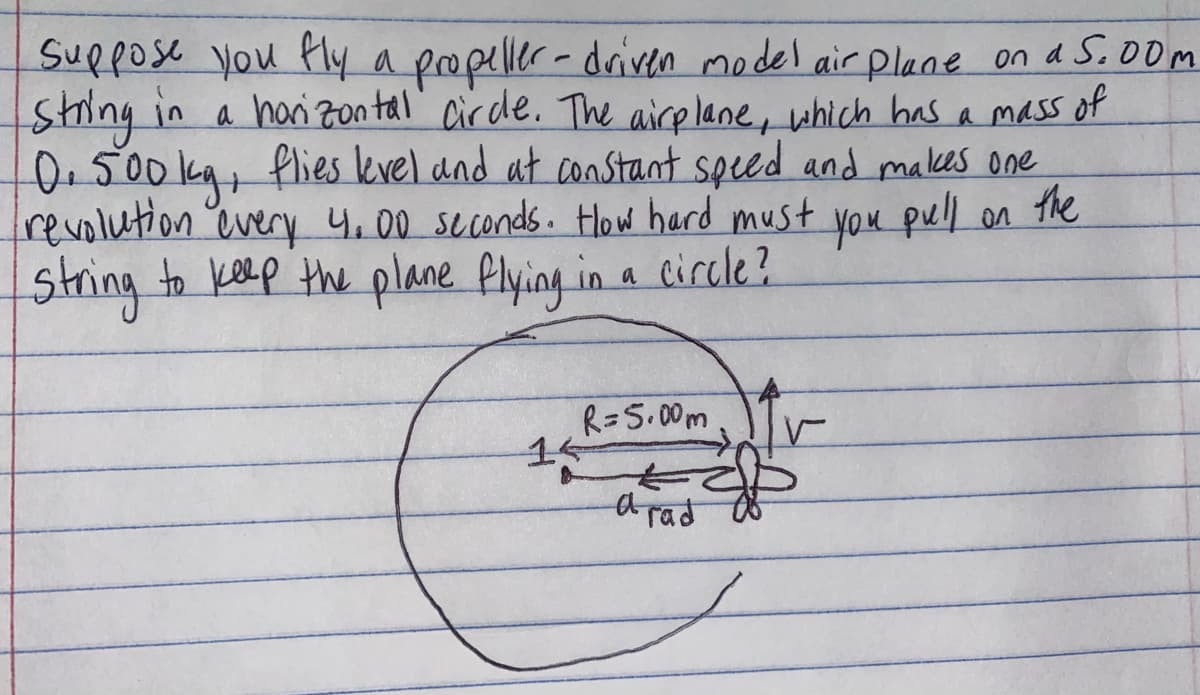 Suppose you fly a propeller-driven model airplane on a 5.00m
string in a horizontal circle. The airplane, which has a mass of
0.500 kg, flies level and at constant speed and makes one
revolution every 4.00 seconds. How hard must you pull on the
string to keep the plane flying in a circle?
R=5.00m
V
1
a rad